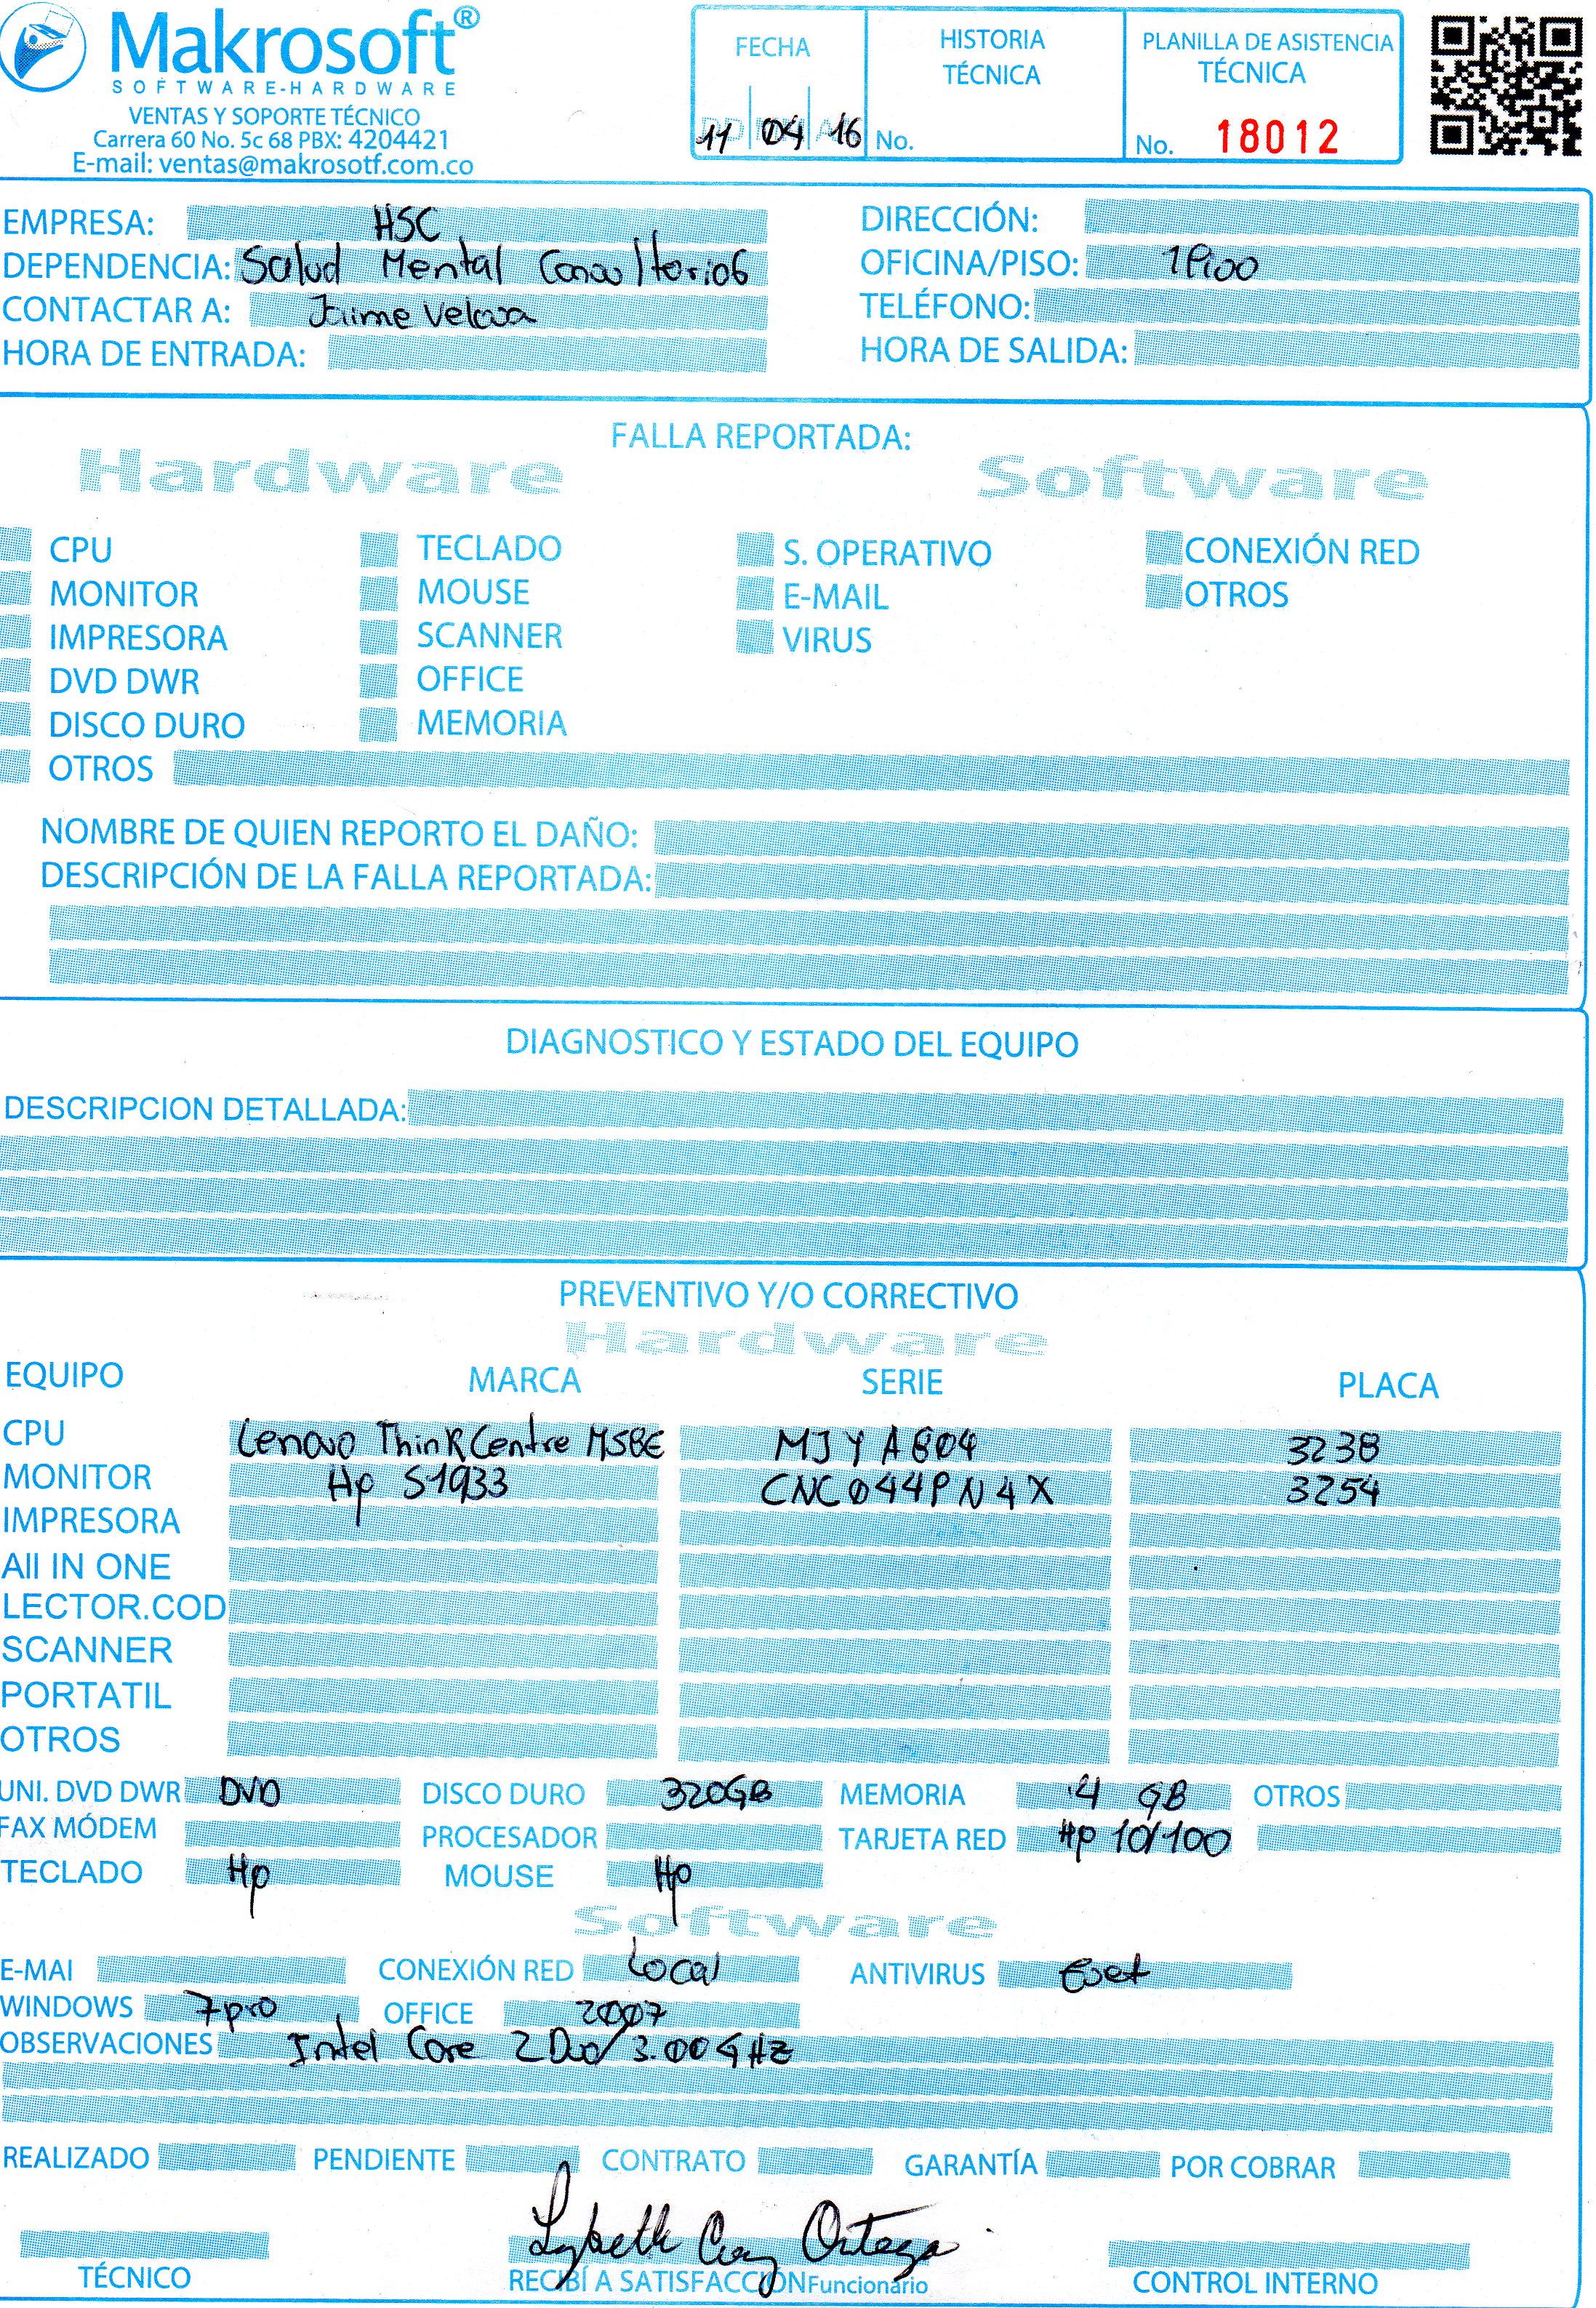 Makrosoft®
SOFTWARE-HARDWARE
VENTAS Y SOPORTE TÉCNICO
Carrera 60 No. 5c 68 PBX: 4204421
E-mail: ventas@makrosotf.com.co
FECHA
11 04 16
HISTORIA TÉCNICA
No.
PLANILLA DE ASISTENCIA TÉCNICA
No. 18012
EMPRESA: HSC
DIRECCIÓN:
DEPENDENCIA: Salud Mental Consultorio6
OFICINA/PISO: 1Piso
CONTACTAR A: Jaime
TELÉFONO:
HORA DE ENTRADA:
HORA DE SALIDA:
FALLA REPORTADA:
Hardware Software
CPU TECLADO S. OPERATIVO CONEXIÓN RED
MONITOR MOUSE E-MAIL OTROS
IMPRESORA SCANNER VIRUS
DVD DWR OFFICE
DISCO DURO MEMORIA
OTROS
NOMBRE DE QUIEN REPORTO EL DAÑO:
DESCRIPCIÓN DE LA FALLA REPORTADA:
DIAGNOSTICO Y ESTADO DEL EQUIPO
DESCRIPCION DETALLADA:
PREVENTIVO Y/O CORRECTIVO
Hardware
EQUIPO MARCA SERIE PLACA
CPU Lenovo ThinkCentre M58E MJYA804 3238
MONITOR Hp S1933 CNC044PN4X 3254
IMPRESORA
All IN ONE
LECTOR.COD
SCANNER
PORTATIL
OTROS
UNI. DVD DWR DVD DISCO DURO 320GB MEMORIA 4 GB OTROS
FAX MÓDEM PROCESADOR TARJETA RED Hp 10/100
TECLADO Hp MOUSE Hp
Software
E-MAI CONEXIÓN RED Local ANTIVIRUS Eset
WINDOWS 7pro OFFICE 2007
OBSERVACIONES Intel Core 2 Duo/3.00GHz
REALIZADO PENDIENTE CONTRATO GARANTÍA POR COBRAR
Ortega
TÉCNICO RECIBÍ A SATISFACCIÓN Funcionario CONTROL INTERNO